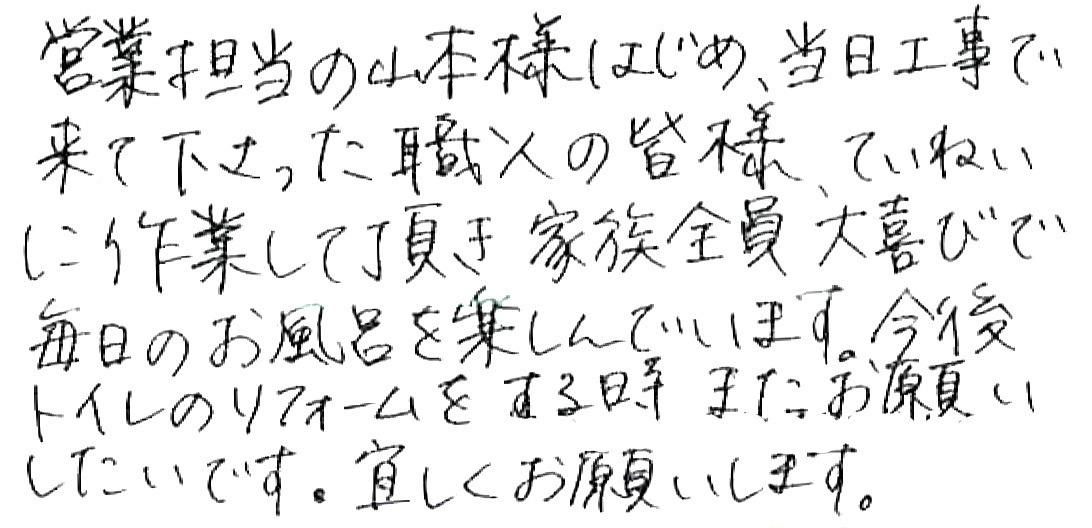 営業担当の山本様はじめ、当日工事で
来て下さった職人の皆様、ていねい
に作業して頂き 家族全員 大喜びで
毎日のお風呂を楽しんでいます。今後
トイレのリフォームをする時 またお願い
したいです。宜しくお願いします。